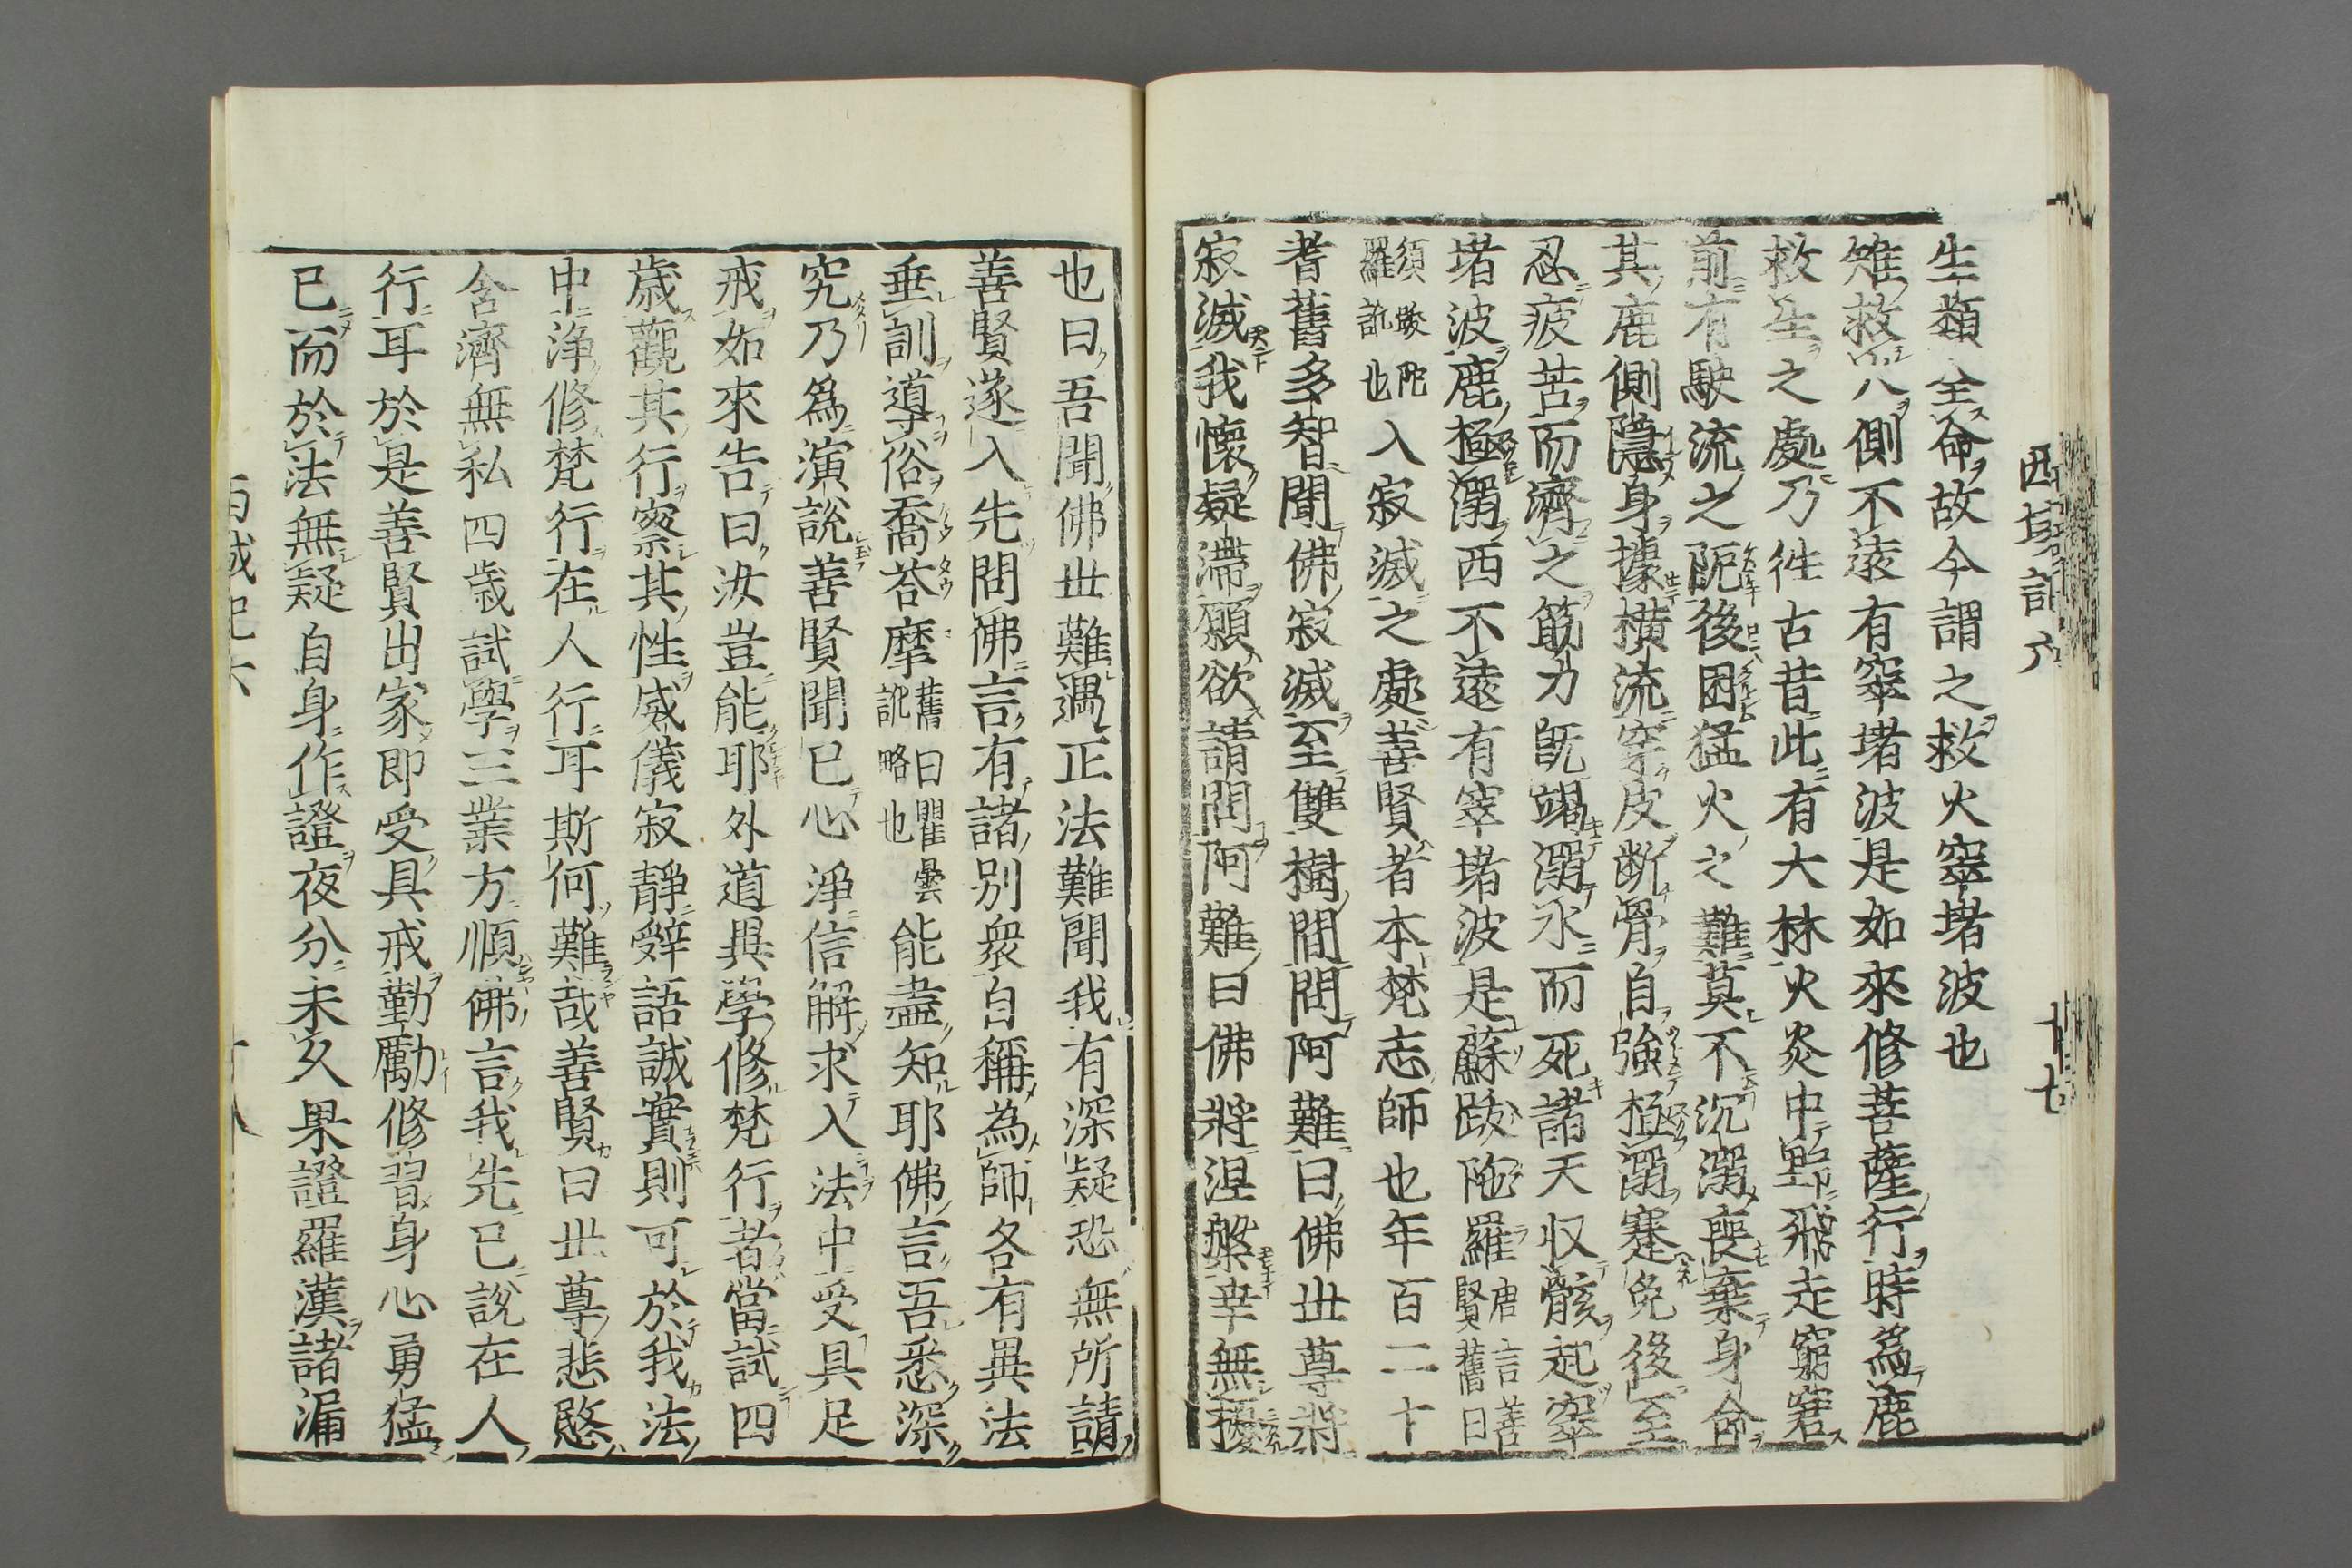 西域記六
廿七
生類全命故今謂之救火窣堵波也
雉救火側不遠有窣堵波是如來修菩薩行時爲鹿
救生之處乃徃古昔此有大林火炎中野飛走窮窘
前有駛流之阨後困猛火之難莫不沉溺喪棄身命
其鹿側隱身據橫流穿皮断骨自強極溺蹇兔後至
忍疲苦而濟之筋力旣竭溺水而死諸天収骸起窣
堵波鹿極溺西不遠有窣堵波是蘇跋陀羅唐言善賢舊曰
須跋陀羅訛也入寂滅之處善賢者本梵志師也年百二十
耆舊多智聞佛寂滅至雙樹間問阿難曰佛世尊將
寂滅我懷疑滯願欲請問阿難曰佛將涅槃幸無擾
也曰吾聞佛世難遇正法難聞我有深疑恐無所請
善賢遂入先問佛言有諸別衆自稱為師各有異法
垂訓導俗喬荅摩舊曰瞿曇訛略也能盡知耶佛言吾悉深
究乃爲演説善賢聞已心淨信解求入法中受具足
戒如來告曰汝豈能耶外道異學修梵行者當試四
歳觀其行察其性威儀寂靜辝語誠實則可於我法
中淨修梵行在人行耳斯何難哉善賢曰世尊悲愍
含濟無私四歳試學三業方順佛言我先已説在人
行耳於是善賢出家即受具戒勤勵修習身心勇猛
已而於法無疑自身作證夜分未久果證羅漢諸漏
西域記六